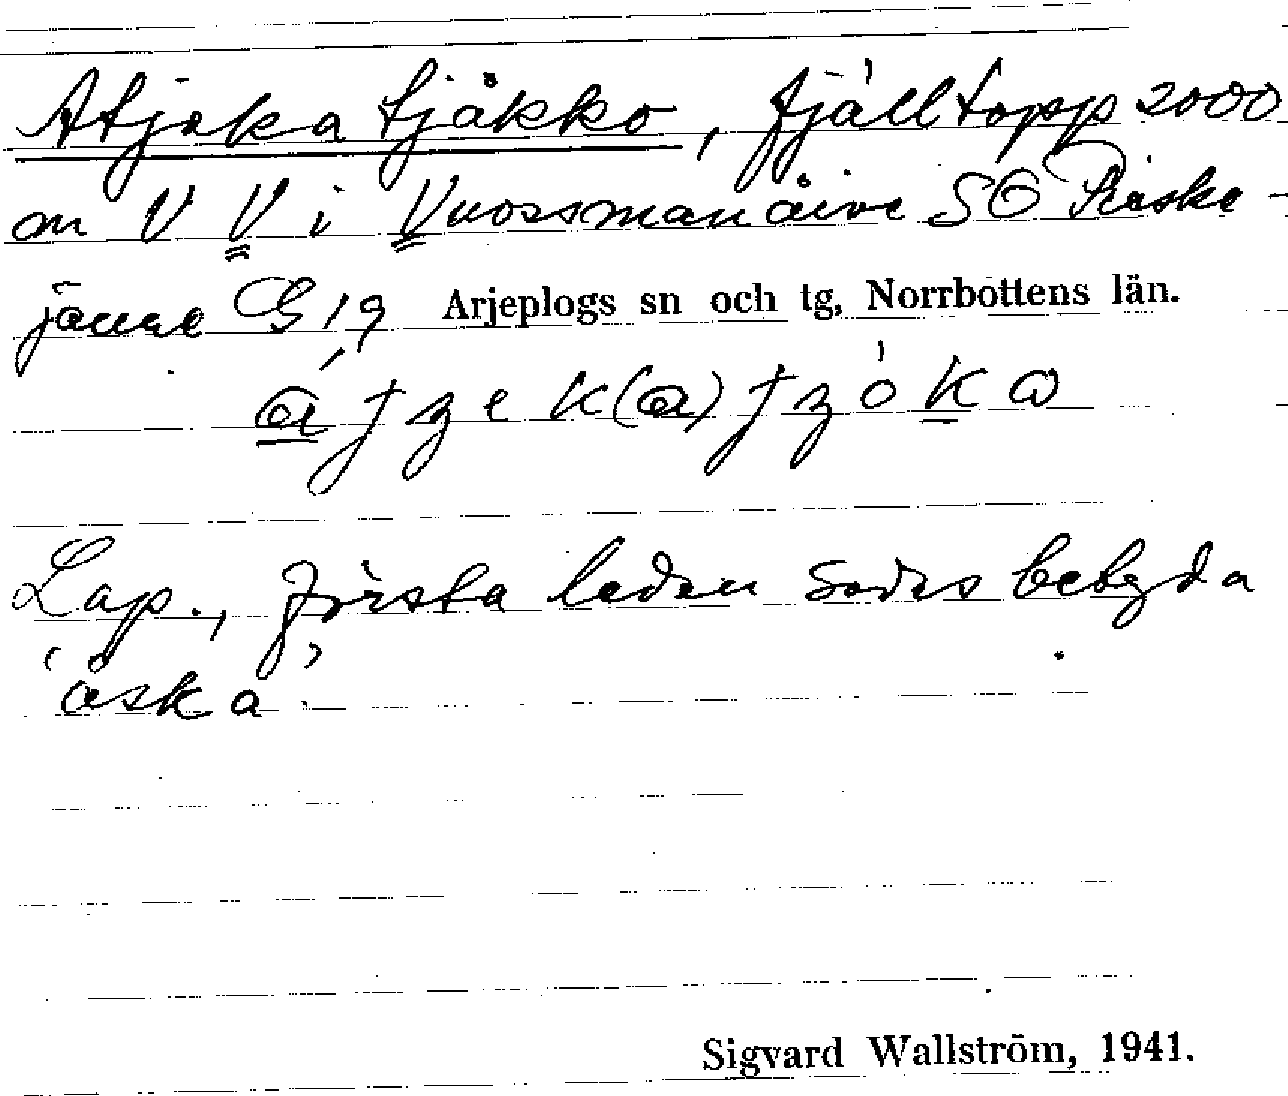 Atjeka tjåkko, fjälltopp 2000
m V V i Vuossmanåive SO Pieske-
jaure G 19 Arjeplogs sn och tg, Norrbottens län.
Lap., första leden sades betyda
'åska'.
Sigvard Wallström, 1941.